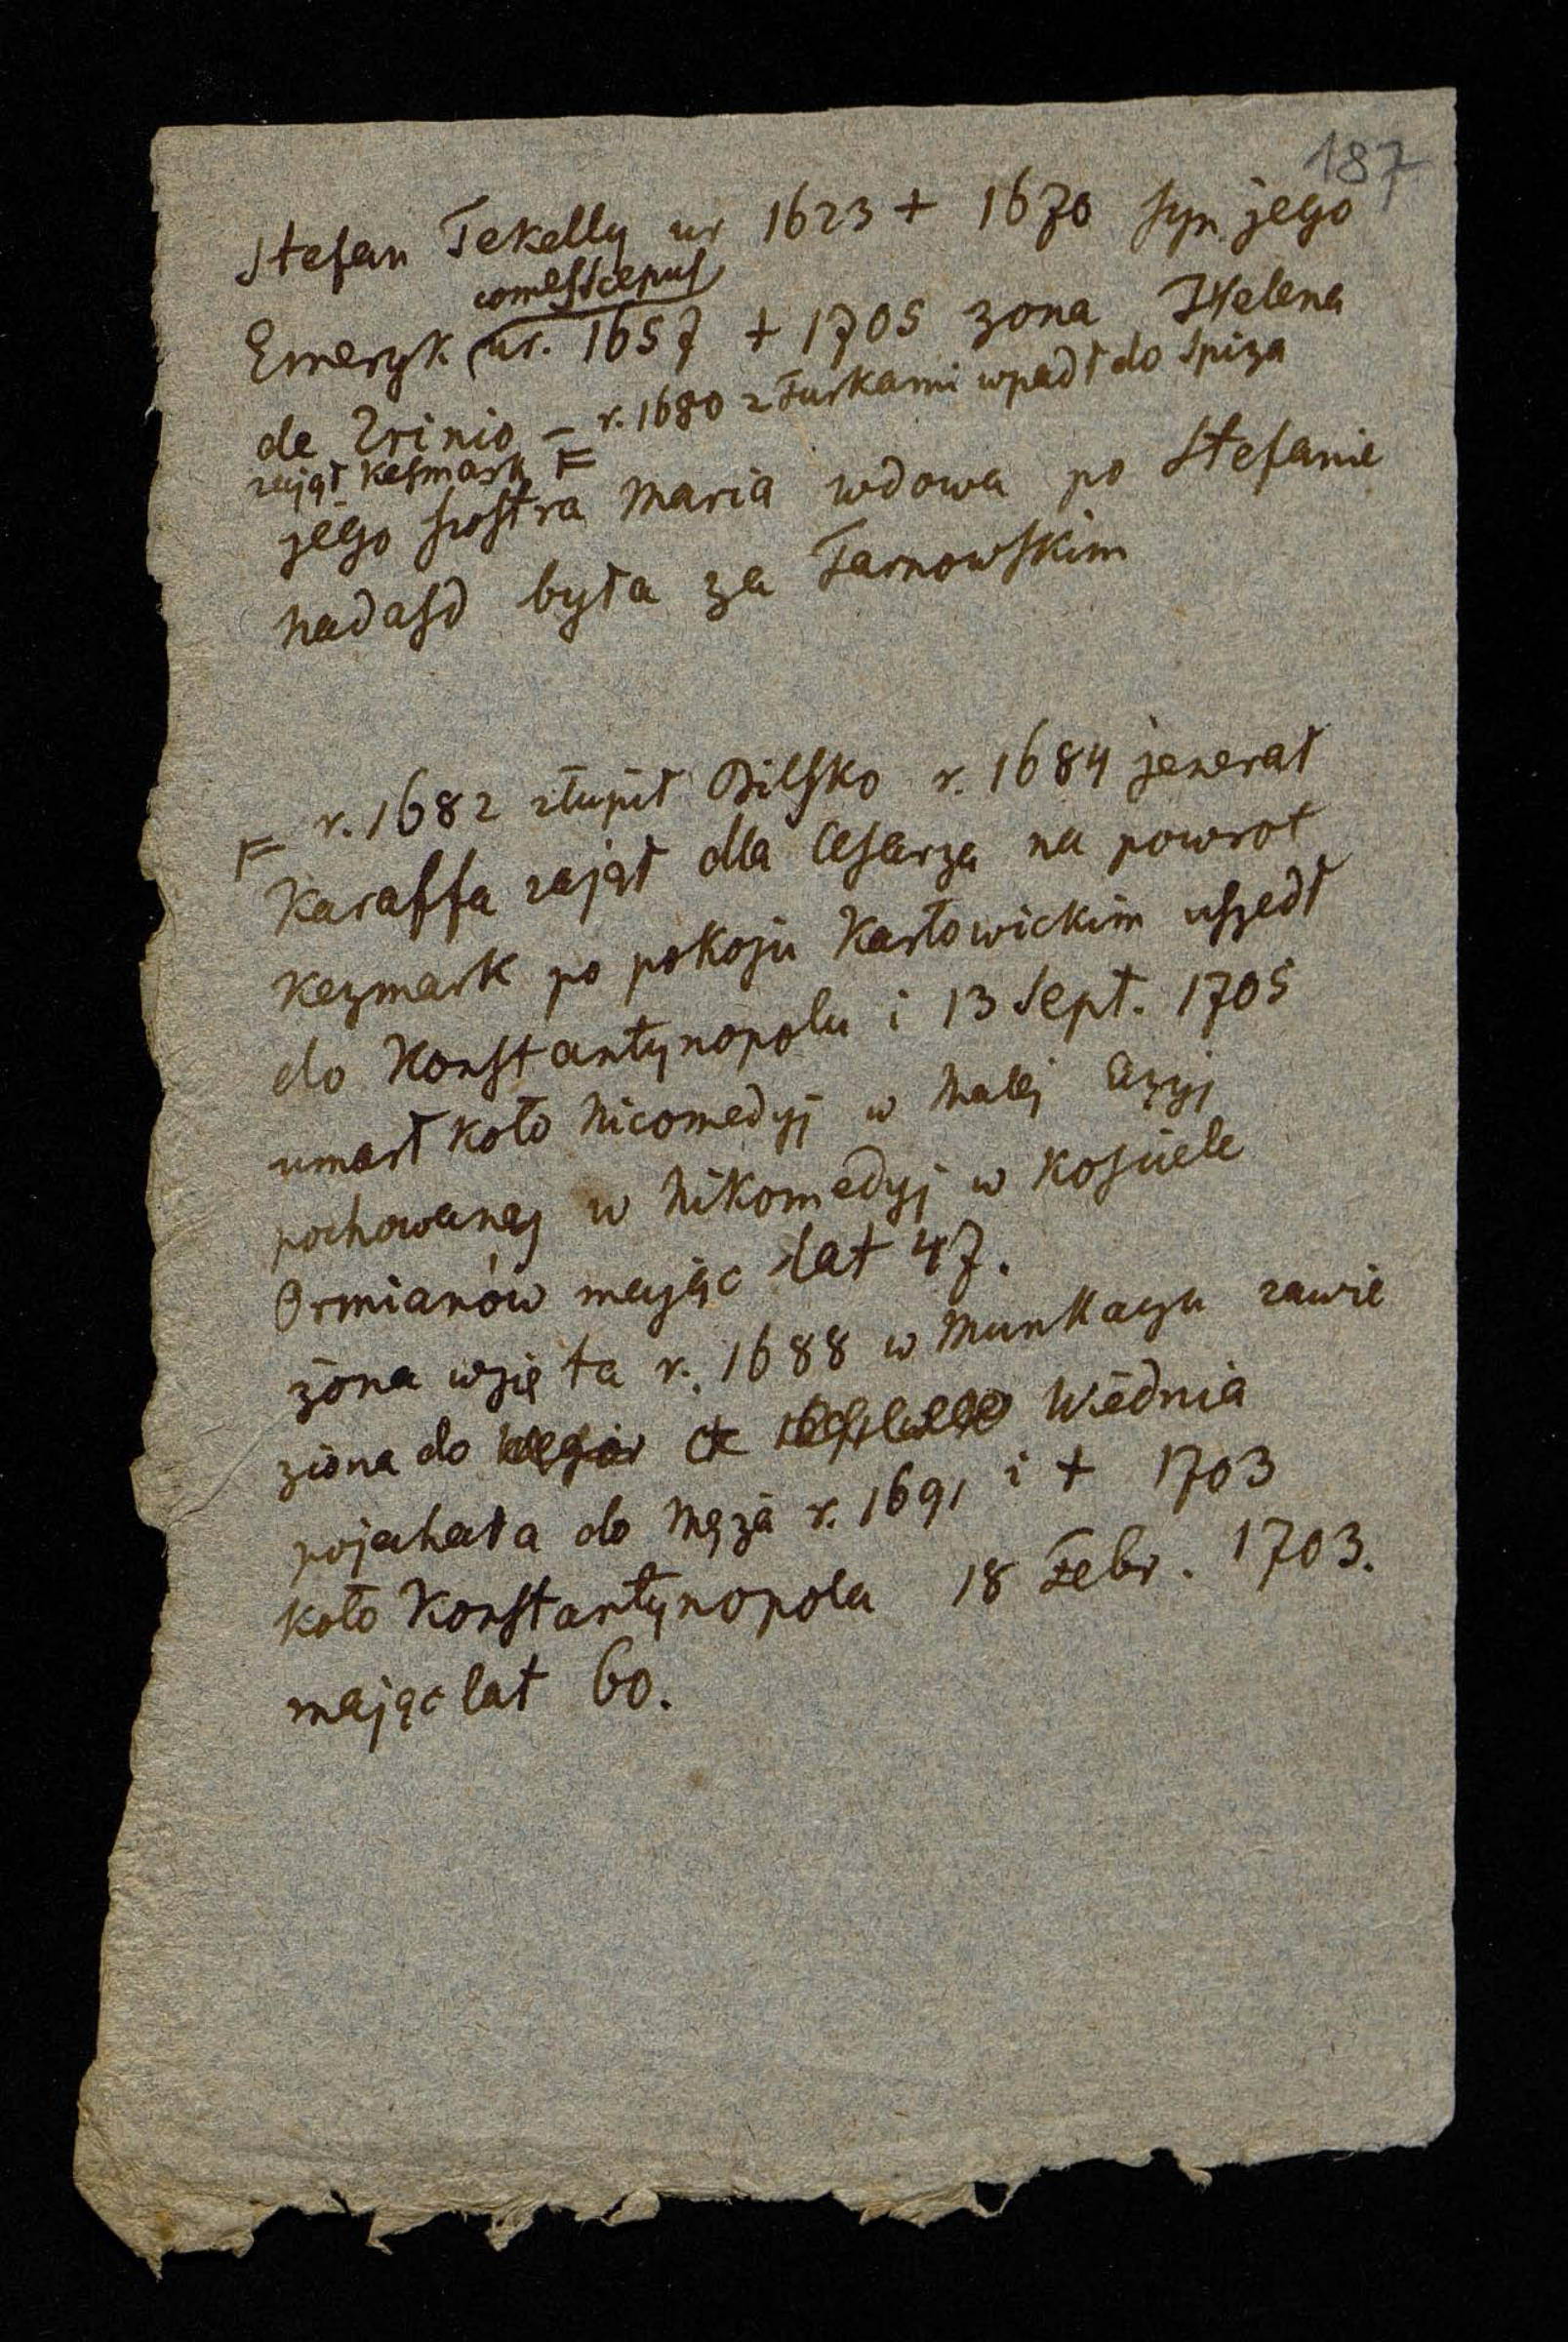 187
Stefan Tekelly ur 1623 + 1670 syn jego
comes Scepus
Emeryk ur. 1657 + 1705 zona Helena
de Zrinio – r. 1680 z Turkami wpadł do Spiza
zajął Kesmark F
jego siostra Maria wdowa po Stefanie
Nadasd była za Tarnowskim
F r. 1682 złupił Bilsko r. 1684 jenerał
Karaffa zajął dla Cesarza na powrot
Kezmark po pokoju Karłowickim uszedł
do Konstantynopolu i 13 Sept. 1705
umarł koło Nicomedyj w Małej Azyj
pochowany w Nikomedyj w Kosciele
Ormianów mając lat 47.
żona wzięta r. 1688 w Munkaczu zawie
ziona do Wiednia
pojechała do Męża r. 1691 i + 1703
koło Konstantynopola 18 Febr. 1703.
mając lat 60.